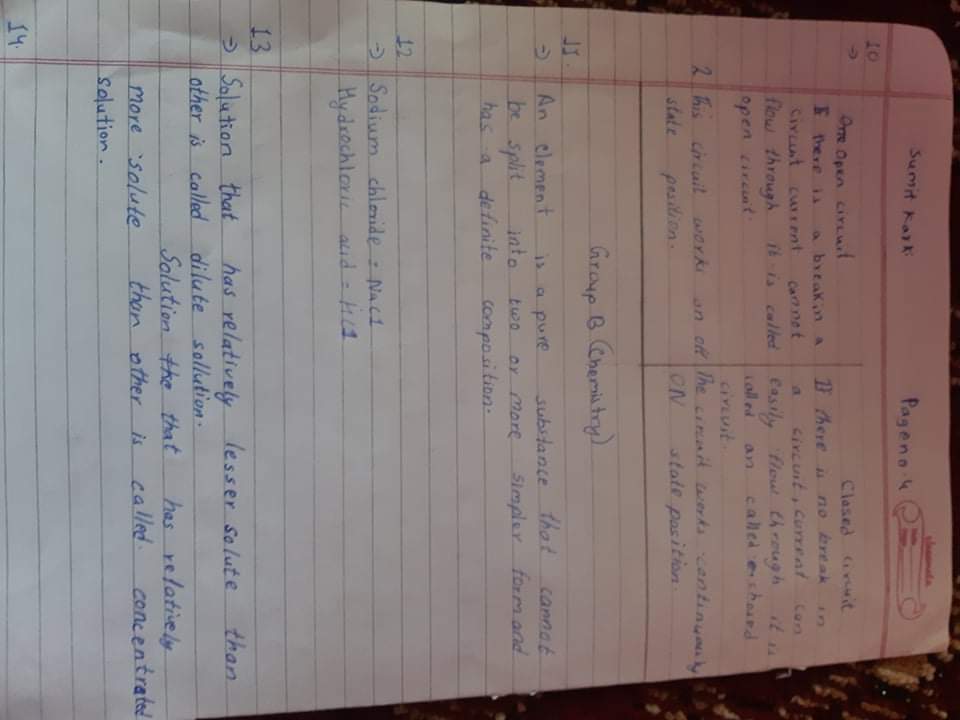 Sumit Karki Page no. 4
10
⇒ Open circuit Closed circuit
If there is a break in a If there is no break in
circuit current cannot a circuit, current can
flow through it is called easily flow through it is
open circuit. called an called enclosed
circuit.
2 This circuit works on off The circuit works continuously
state position. ON state position.
Group B (Chemistry)
11.
⇒ An element is a pure substance that cannot
be split into two or more simpler form and
has a definite composition.
12
⇒ Sodium chloride = NaCl
Hydrochloric acid = HCl
13
⇒ Solution that has relatively lesser solute than
other is called dilute sollution.
Solution the that has relatively
more solute than other is called concentrated
solution.
14.